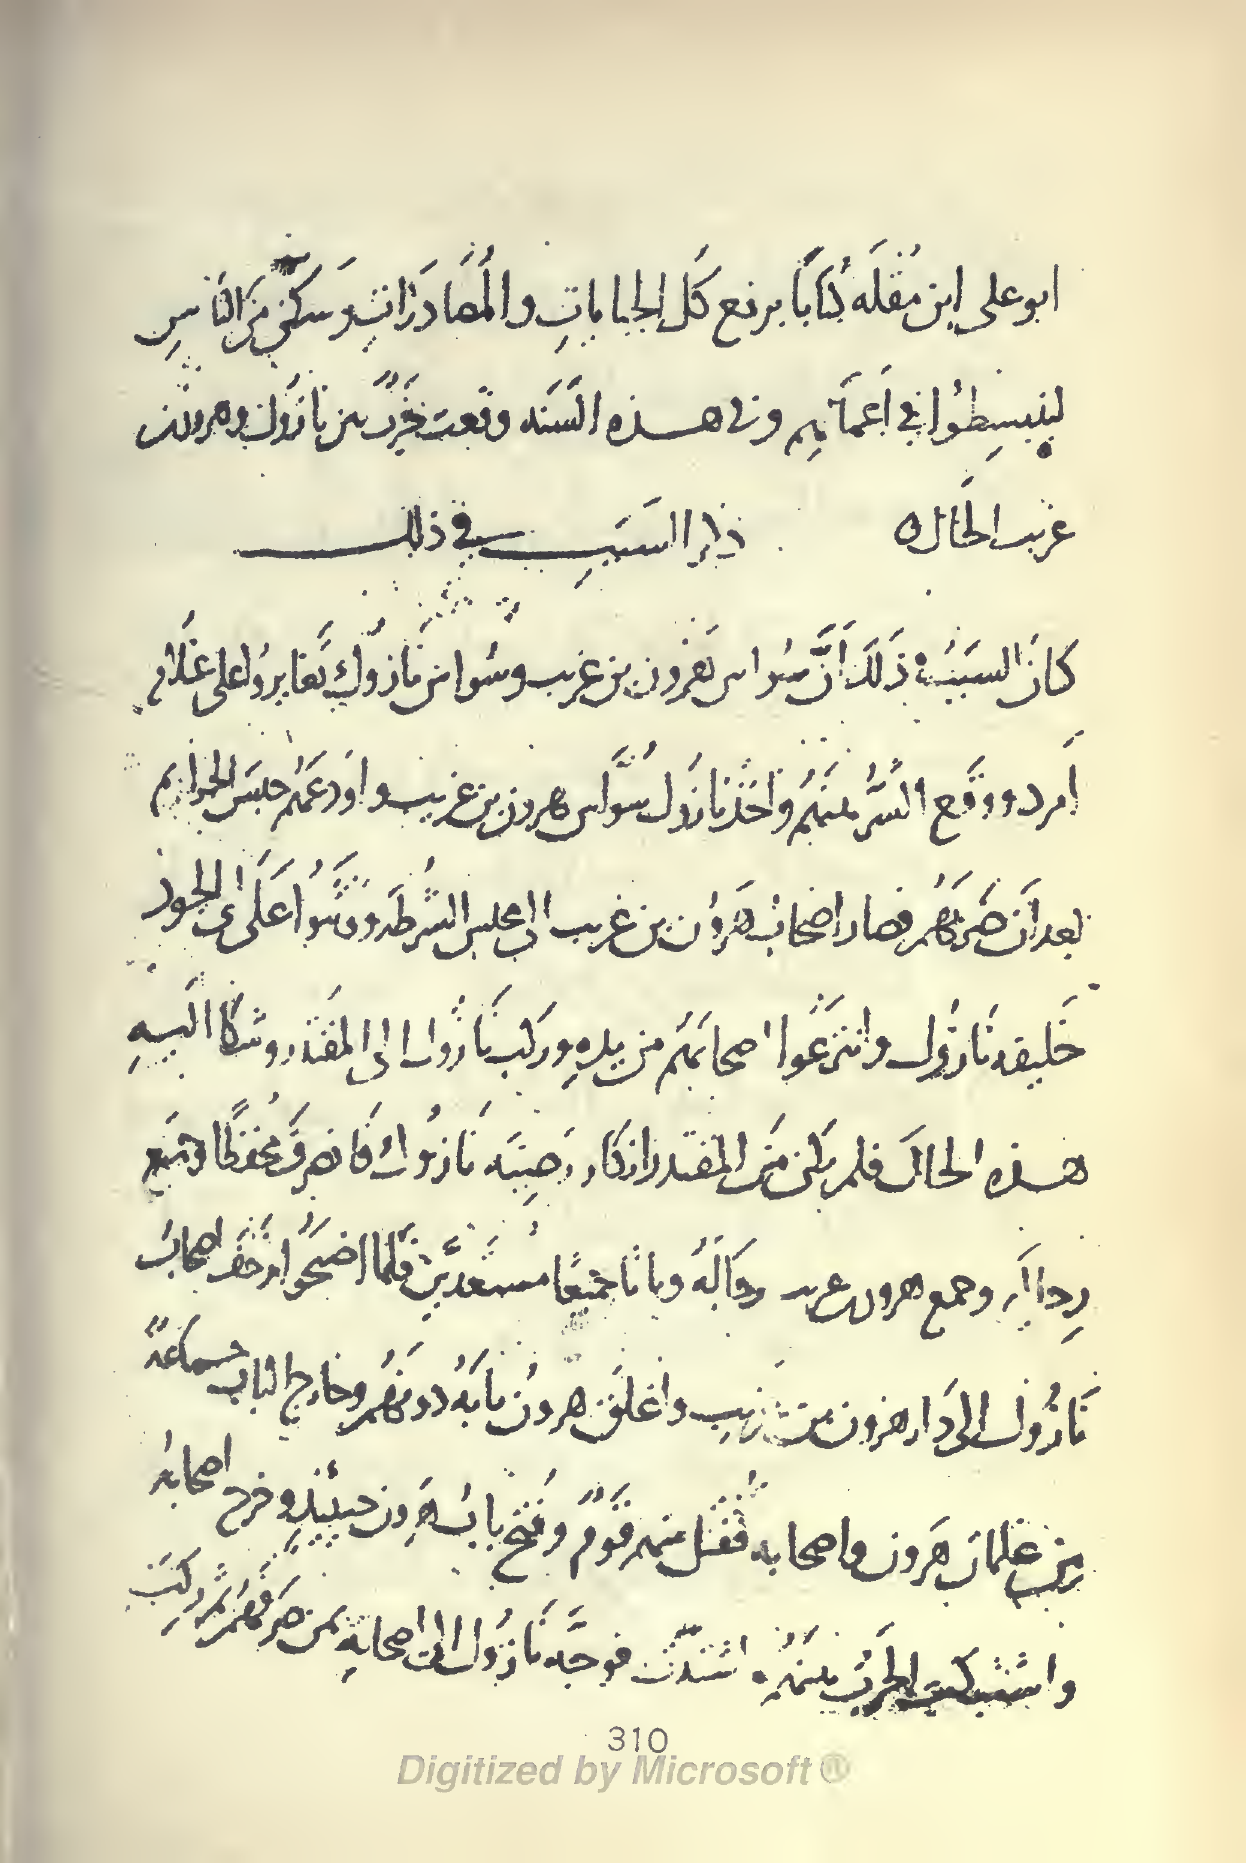 ابو على ابن مُقلَه كتابًا برفع كل الجبايات والمُصادرات وسكّن من الناس
لينبسطوا في اعمالهم وفي هذه السَنَه وقعت حَرْبٌ بين نازوك وهرون بن
غريب الخال ٥ ذكر السَبَب في ذلك
كان السبَبُ في ذلك أنّ سُواس هرون بن غريب وسُواس نازوك تَغايروا على غلام
أمرد ووقع الشَرُّ بينهم وأخذ نازوك سُوّاس هرون بن غريب واودعهم حبس الجرائم
بعد أن ضربهم فصار اصحاب هرون بن غريب الى مجلس الشُرطه ووثبوا على ابى الجود
خليفه نازوك وانتزعوا اصحابهم من يده وركب نازوك الى المقتدر وشكا اليه
هذه الحال فلم يكن من المقتدر انكار رَضِيَه نازوك فانصرف مُحفظًا وجمع
رجاله وجمع هرون بن غريب رجالَهُ وباتا جميعًا مستعدّين فلما اصبحوا زحف اصحاب
نازوك الى دار هرون بن غريب واغلق هرون بابَهُ دونهم وخارج الباب جماعةٌ
من غلمان هرون واصحابه فقُتل منهم قَوْمٌ وفُتح بابُ هرون حينئذٍ وخرج اصحابُه
واشتبكت الحربُ بينهم واشتدّت فوجّه نازوك الى اصحابه بمن صرفهم ثم ركب
310
Digitized by Microsoft ®